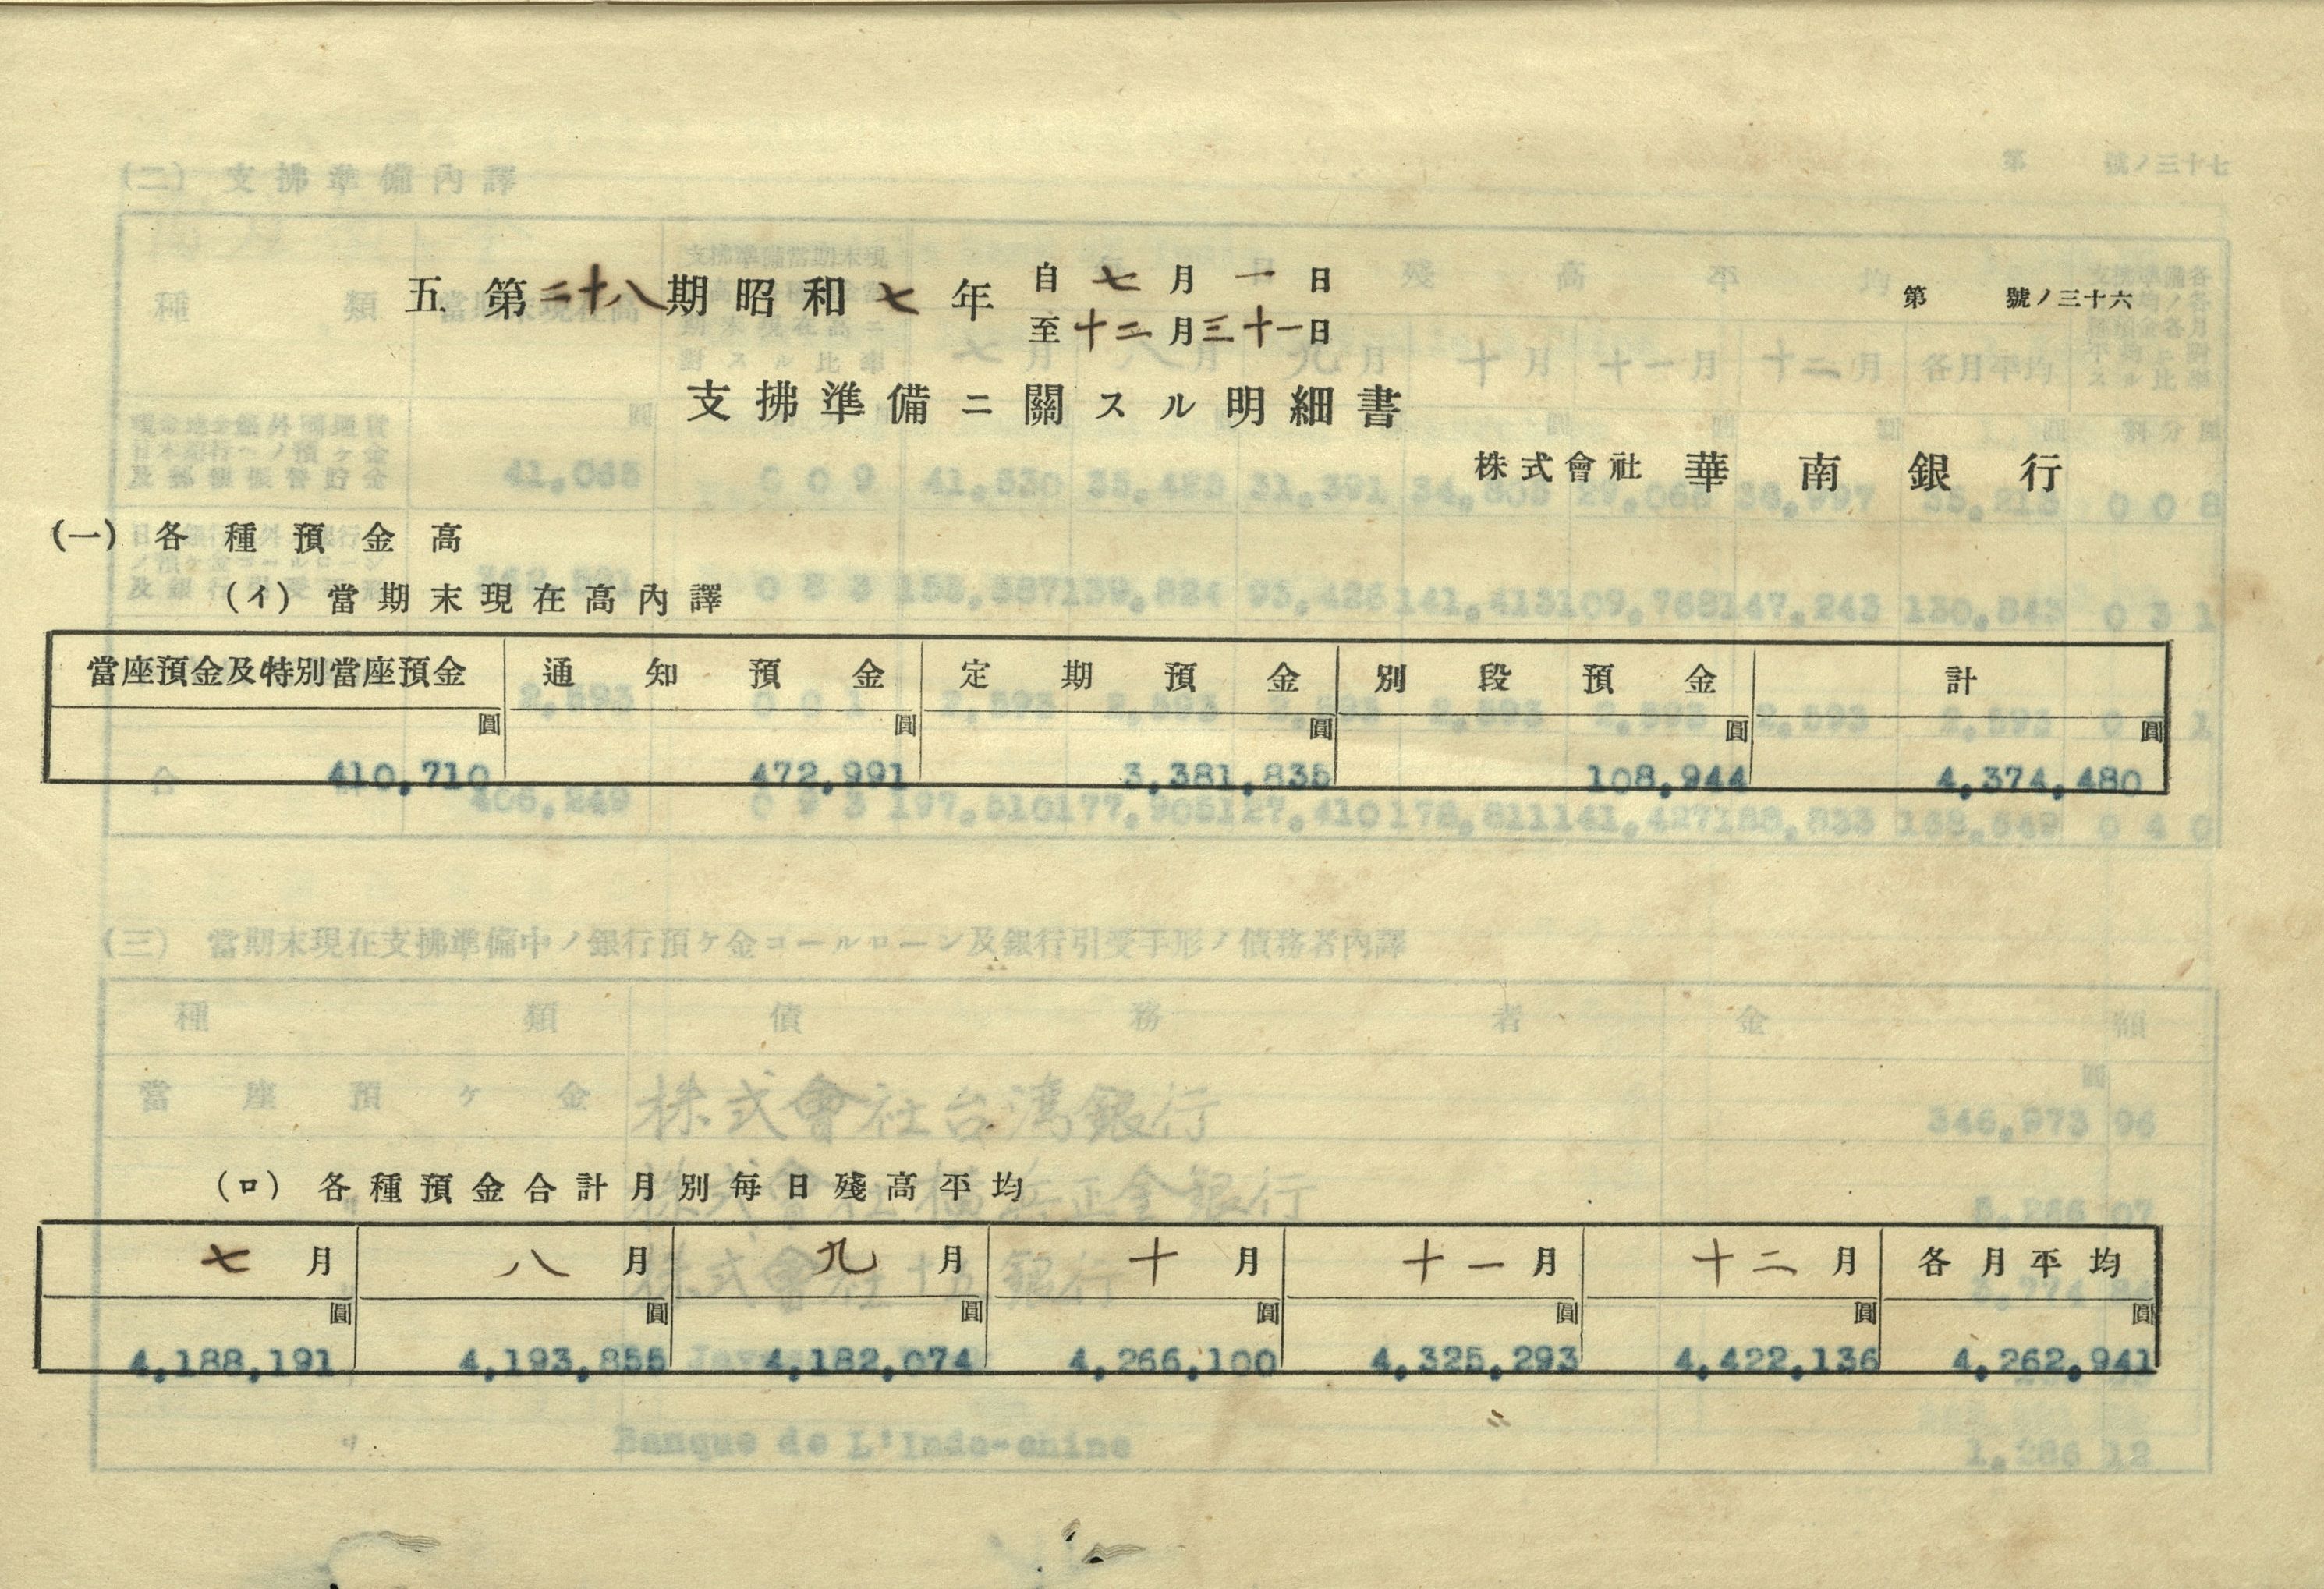 五 第二十八期昭和七年 自七月一日 至十二月三十一日
第 號ノ三十六
支拂準備ニ關スル明細書
株式會社 華南銀行
(一) 各種預金高
(イ) 當期末現在高內譯
當座預金及特別當座預金 通知預金 定期預金 別段預金 計
圓 圓 圓 圓 圓
410,710 472,991 3,381,835 108,944 4,374,480
(ロ) 各種預金合計月別每日殘高平均
七月 八月 九月 十月 十一月 十二月 各月平均
圓 圓 圓 圓 圓 圓 圓
4,188,191 4,193,855 4,182,074 4,266,100 4,325,293 4,422,136 4,262,941